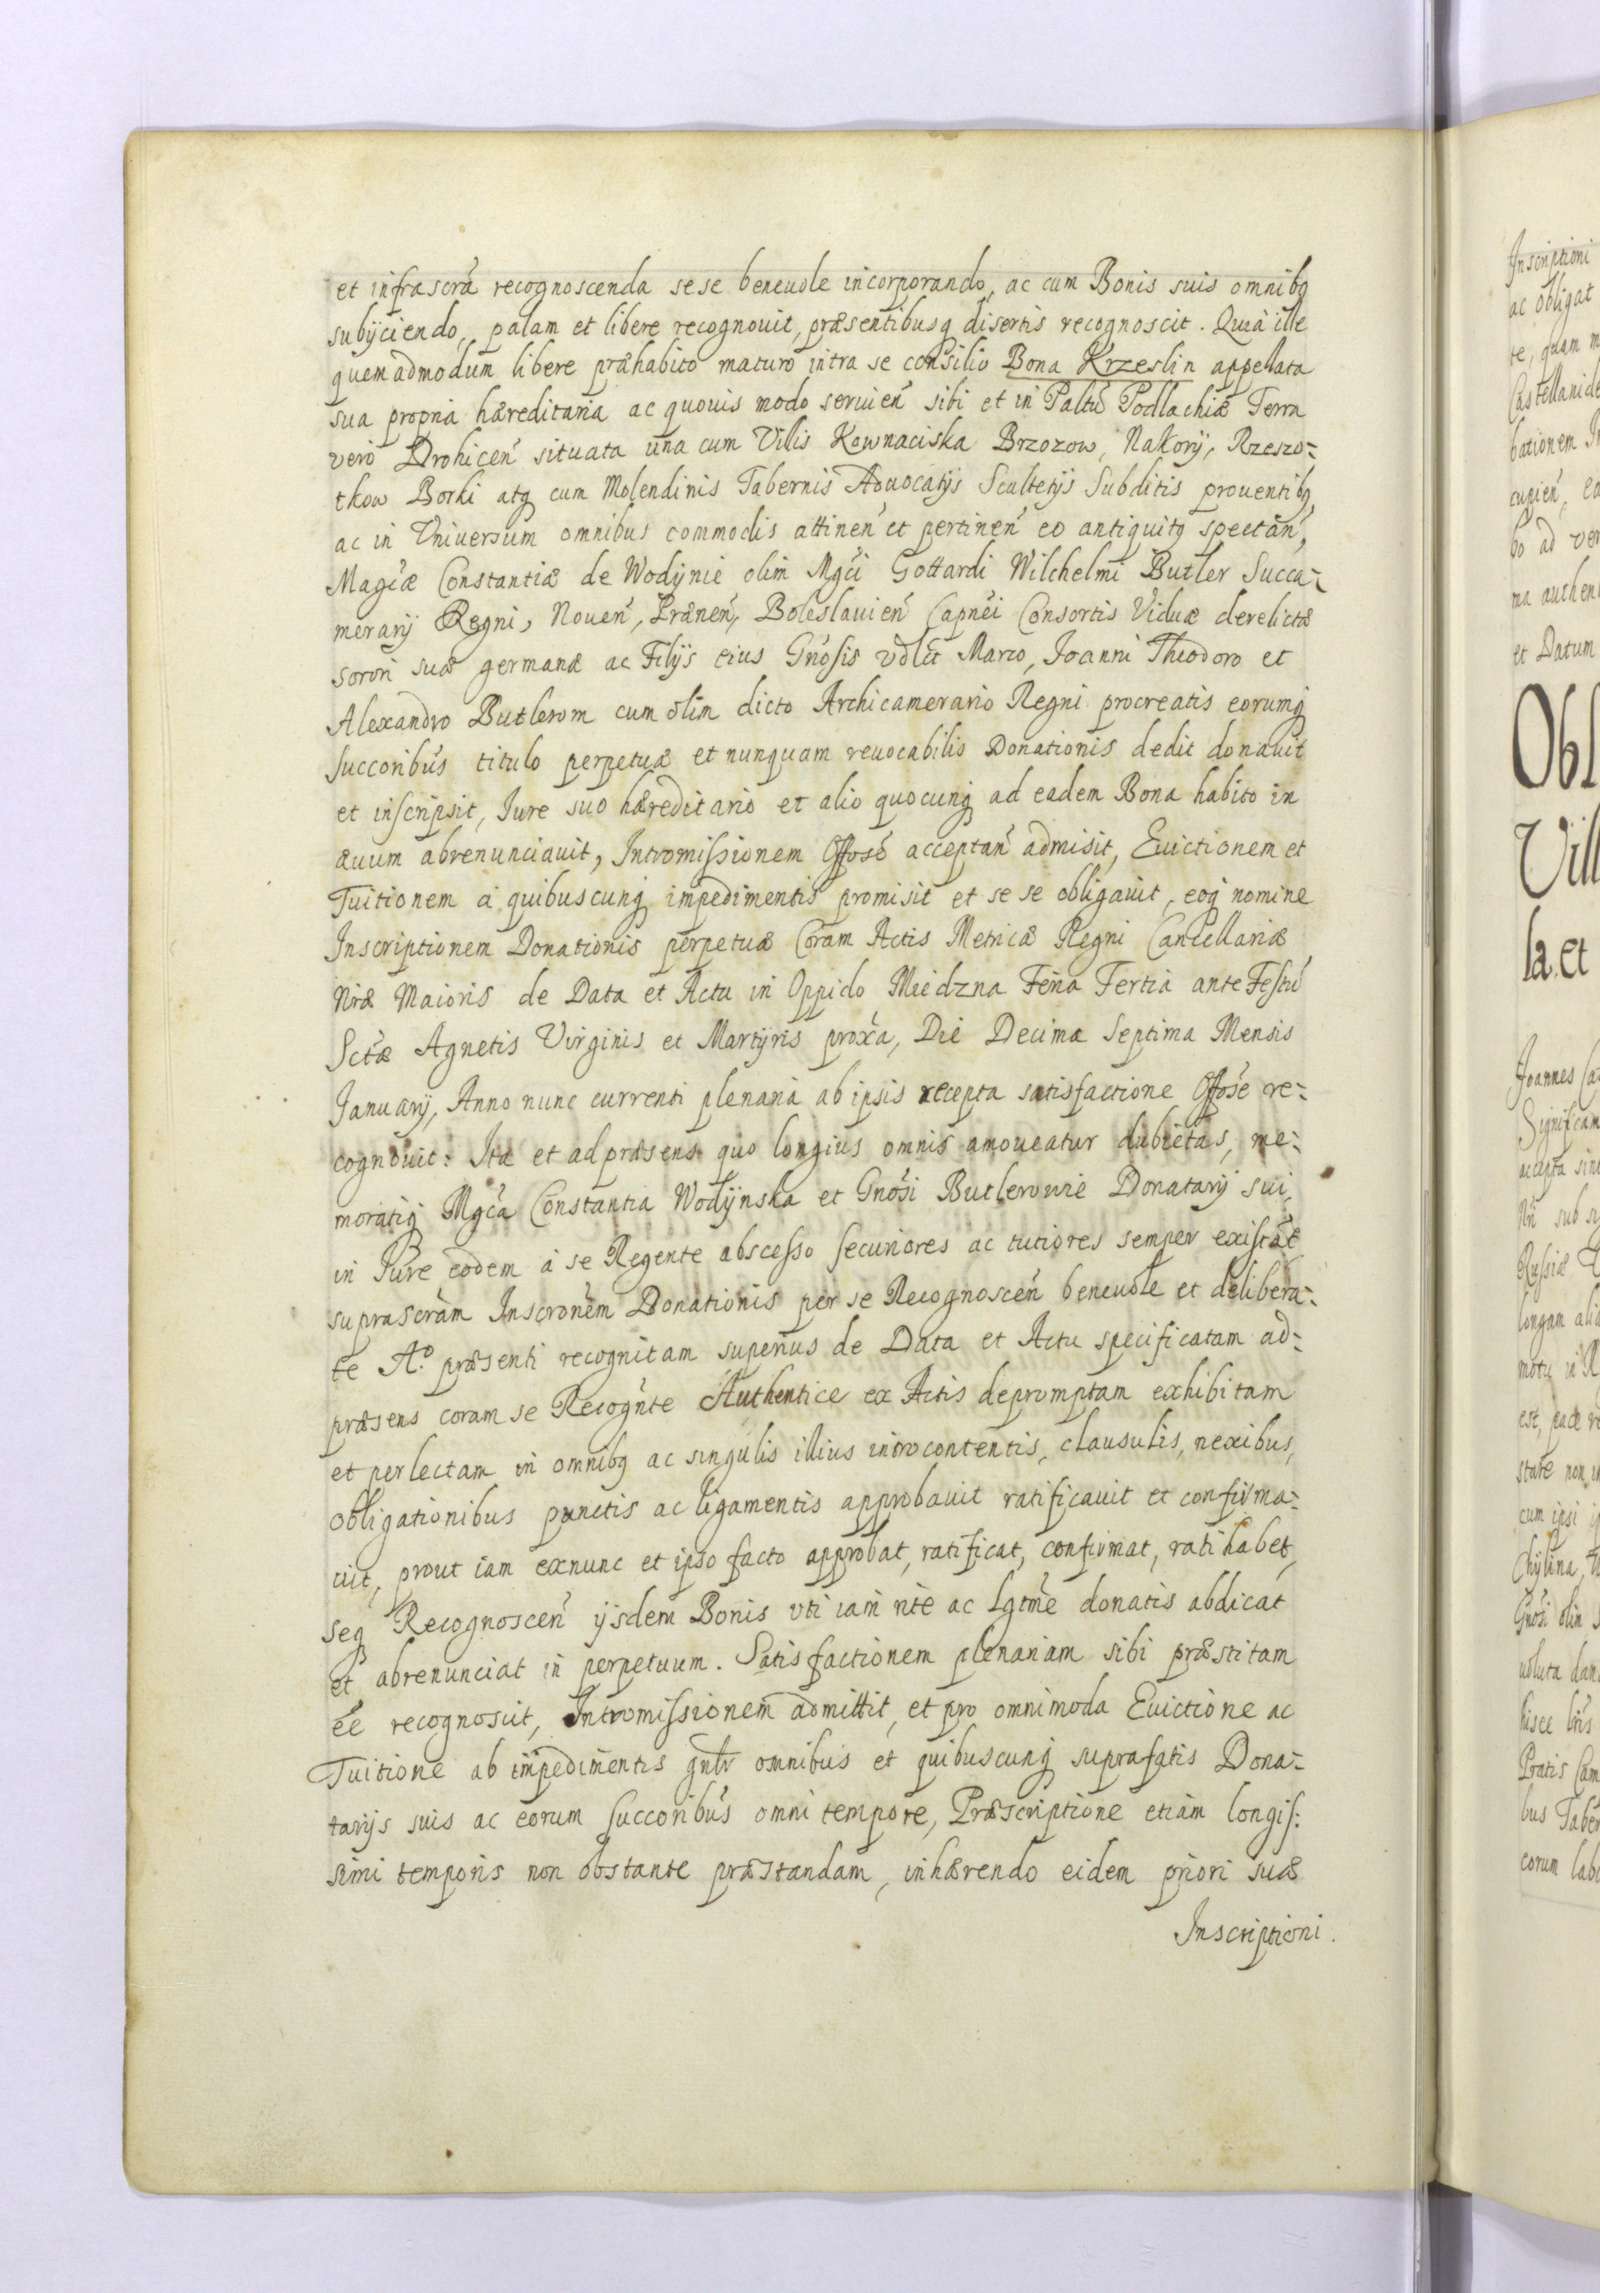 et infrascrā recognoscenda sese beneuole incorporando, ac cum Bonis suis omnibꝫ
subÿciendo, palam et libere recognouit, præsentibusqꝫ disertis recognoscit. Quià ille
quemadmodum libere præhabito maturo intra se consilio Bona Krzeslin appellata
sua propria hæreditaria ac quouis modo seruień sibi et in Paltū Podlachiæ Terra
vero Drohiceń situata una cum Villis Kownaciska Brzozow, Nakorÿ, Rzeszo-
tkow Borki atqꝫ cum Molendinis Tabernis Aduocatÿs Scultetÿs Subditis prouentibꝫ
ac in Vniuersum omnibus commodis attineń et pertineń eo antiquitꝫ spectań,
Magcæ Constantiæ de Wodÿnie olim Mgci Gottardi Wilchelmi Butler Succa-
merarÿ Regni, Noueń, Præneń, Boleslauień Capnei Consortis Viduæ derelictæ
sorori suæ germanæ ac Filÿs eius Gnosis vdlct Marco, Joanni Theodoro et
Alexandro Butlerom cum olim dicto Archicamerario Regni procreatis eorumqꝫ
succoribus titulo perpetuæ et nunquam reuocabilis Donationis dedit donauit
et inscripsit, Jure suo hæreditario et alio quocunqꝫ ad eadem Bona habito in
æuum abrenunciauit, Intromissionem Offose acceptań admisit, Euictionem et
Tuitionem a quibuscunqꝫ impedimentis promisit et se se obligauit, eoqꝫ nomine
Inscriptionem Donationis perpetuæ Coram Actis Metricæ Regni Cancellariæ
Nræ Maioris de Data et Actu in Oppido Miedzna Feria Tertia ante Festū
Sctæ Agnetis Virginis et Martÿris proxa, Die Decima Septima Mensis
Januarÿ, Anno nunc currenti plenaria ab ipsis recepta satisfactione Offose re-
cognouit: Ita et ad præsens quo longius omnis amoueatur dubietas, me-
moratiqꝫ Mgca Constantia Wodÿnska et Gnosi Butlerowie Donatarÿ sui,
in Jure eodem à se Regente abscesso securiores ac tutiores semper existāt
suprascram Inscronem Donationis per se Recognosceń beneuole et delibera-
te Aº. præsenti recognitam superius de Data et Actu specificatam ad-
præsens coram se Recognte Authentice ex Actis depromptam exhibitam
et perlectam in omnibꝫ ac singulis illius introcontentis, clausulis, nexibus,
obligationibus punctis ac ligamentis approbauit ratificauit et confirma-
uit, prout iam exnunc et ipso facto approbat, ratificat, confirmat, ratihabet,
seqꝫ Recognosceń ÿsdem Bonis vti iam rite ac Lgtme donatis abdicat
et abrenunciat in perpetuum. Satisfactionem plenariam sibi præstitam
ee recognoscit, Intromissionem admittit, et pro omnimoda Euictione ac
Tuitione ab impedimentis gnlr omnibus et quibuscunqꝫ suprafatis Dona-
tarÿs suis ac eorum succoribus omni tempore, Præscriptione etiam longis:
simi temporis non obstante præstandam, inhærendo eidem priori suæ
Inscriptioni.
Inscriptioni
ac obligat
te, quam
bationem
ad
ma authen
et Datum
Obl
Vill
la et
Joannes
Significam
accepta
sub
Russiæ
longam
motu in
est, pace
stare non
cum ipsi
Chylina
Gnosi olim
hisce
Pratis
bus
eorum